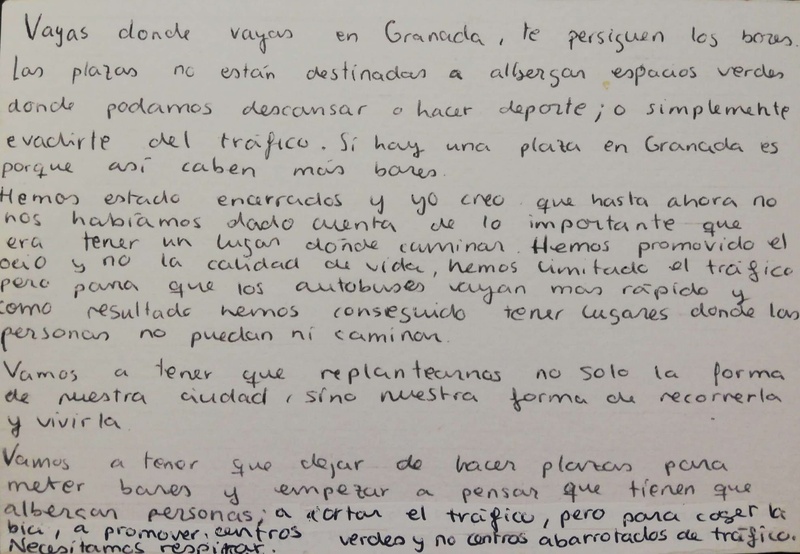 Vayas donde vayas en Granada, te persiguen los bares.
Las plazas no están destinadas a albergar espacios verdes
donde podamos descansar o hacer deporte; o simplemente
evadirte del tráfico. Si hay una plaza en Granada es
porque así caben más bares.
Hemos estado encerrados y yo creo que hasta ahora no
nos habíamos dado cuenta de lo importante que
era tener un lugar dónde caminar. Hemos promovido el
ocio y no la calidad de vida, hemos limitado el tráfico
pero para que los autobuses vayan mas rápido y
como resultado hemos conseguido tener lugares donde las
personas no puedan ni caminar.
Vamos a tener que replantearnos no solo la forma
de nuestra ciudad, sino nuestra forma de recorrerla
y vivirla
Vamos a tener que dejar de hacer plazas para
meter bares y empezar a pensar que tienen que
albergar personas; a cortar el tráfico, pero para coger la
bici, a promover centros verdes y no centros abarrotados de tráfico.
Necesitamos respirar.